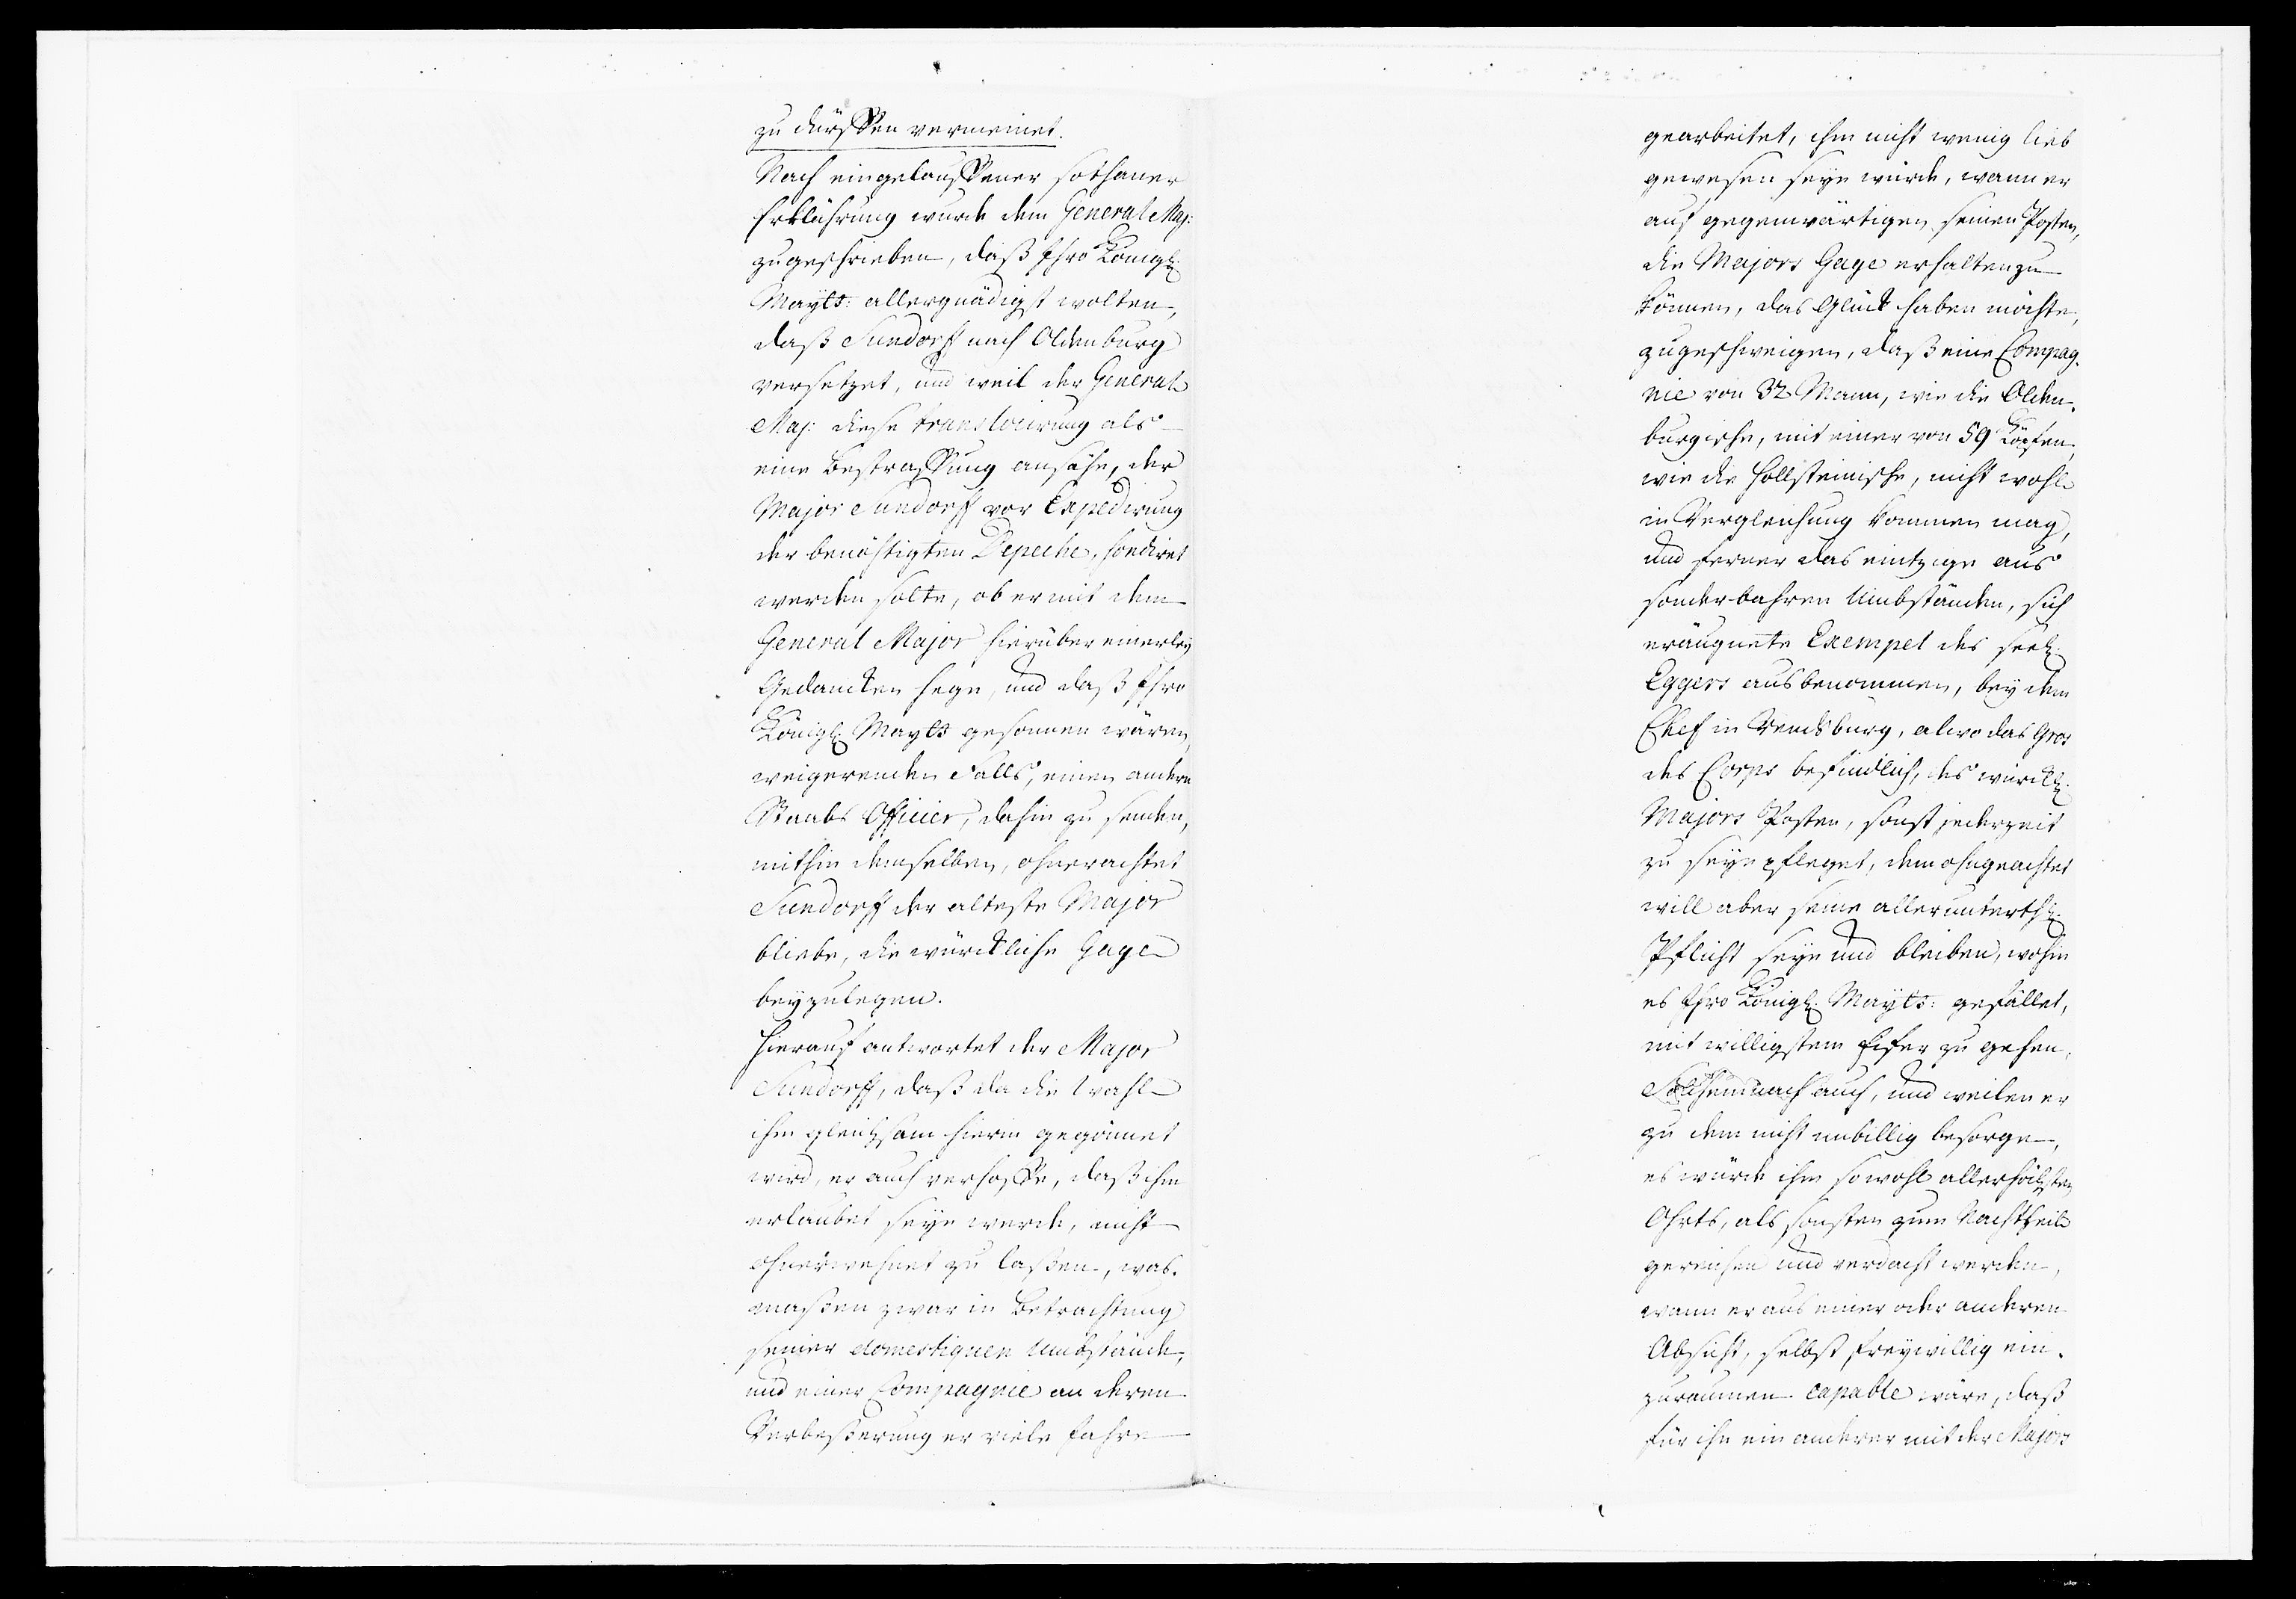 zu dürffen vermeinet.
Nach eingelauffener sothaner
Erklährung wurde dem General Maj:
zugeschrieben, daß Ihro Königl.
Mayts: allergnädigst wolten,
daß Sundorff nach Oldenburg
versetzet, und weil der General
Maj: diese translocirung als
eine Bestraffung ansähe, der
Major Sundorff vor Expedirung
der benöhtigten Depeche, sondiret
werden solte, ob er mit dem
General Major hierüber einerley
Gedancken hege, und daß Ihro
Königl. Mayts gesonnen wären,
weigerenden Falls, einen andern
Staabs Officier, dahin zu senden,
mithin demselben, ohnerachtet
Sundorff der älteste Major
bliebe, die würckliche Gage
beyzulegen.
Hierauf antwortet der Major
Sundorff, daß da die Wahl
ihm gleichsam hierin gegönnet
wird, er auch verhoffe, daß ihm
erlaubet seyn werde, nicht
ohnerwehnet zu laßen, was-
maßen zwar in Betrachtung
seiner domestiquen Umbstände,
und einer Compagnie an deren
Verbeßerung er viele Jahre
gearbeitet, ihm nicht wenig lieb
gewesen seyn würde, wann er
auf gegenwärtigen seinen Posten,
die Majors Gage erhalten zu
können, das Glück haben möchte,
zugeschweigen, daß eine Compag-
nie von 32 Mann, wie die Olden-
burgische, mit einer von 59 Köpfen,
wie die Hollsteinische, nicht wohl
in Vergleichung kommen mag,
und ferner das eintzige aus
sonderbahren Umbständen, sich
eräugnete Exempel des seel.
Eggers ausbenommen, bey dem
Chef in Rendsburg, alwo das Gros
des Corps befindlich, des würckl.
Majors Posten, sonst jederzeit
zu seyn pfleget, dem ohngeachtet
will aber seine allerunterth.
Pflicht seyn und bleiben, wohin
es Ihro Königl. Mayts: gefället,
mit willigstem Eifer zu gehen,
Solchemnach auch, und weilen er
zu dem nicht unbillig besorge,
es würde ihm sowohl allerhöchsten
Ohrts, als sonsten zum Nachtheil
gereichen und verdacht werden,
wann er aus einer oder anderen
Absicht, selbst freywillig ein-
zuräumen capable wäre, daß
für ihn ein anderer mit der Majors